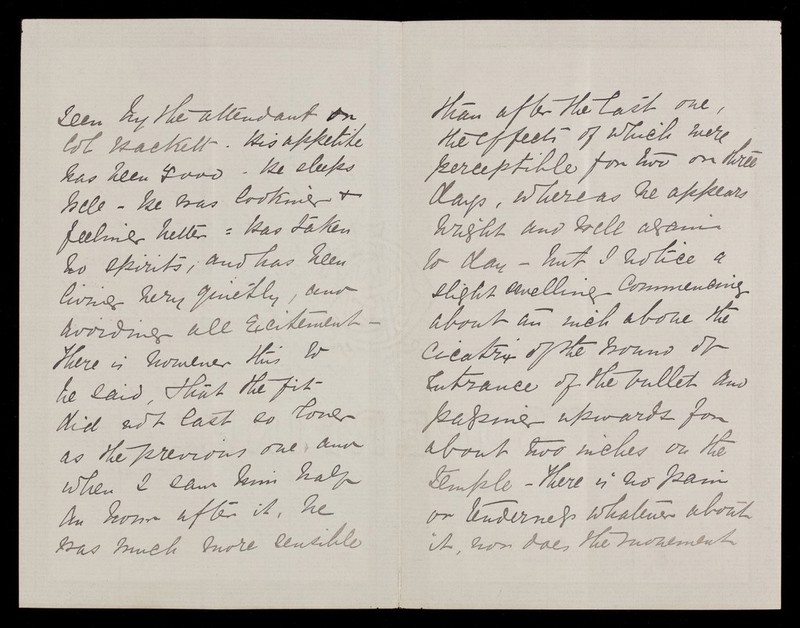 seen by the attendant on
Col Hackett. His appetite
has been good. He sleeps
well - he was looking &
feeling better = Has taken
no spirits, and has been
living very quietly, and
avoiding all Excitement -
There is however this to
be said, that the fit
did not last so long
as the previous one, and
when I saw him half
An hour after it, he
was much more sensible
than after the last one,
the effects of which were
perceptible for two or three
days, whereas he appears
bright and well again
to day - but I notice a
slight swelling Commencing
about an inch above the
Cicatrix of the wound of
Entrance of the bullet and
passing upwards for
about two inches on the
Temple - There is no pain
or tenderness whatever about
it, nor does the movement